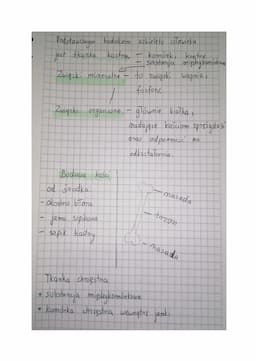 Podstawowym budulcem szkieletu człowieka
jest tkanka kostna - komórki kostne
- substancja międzykomórkowa
Związki mineralne - to związki wapnia,
fosforu
Związki organiczne - głównie białka,
nadające kościom sprężystość
oraz odporność na
odkształcenia.
Budowa kości
od środka
- okostna błona
- jama szpikowa
- szpik kostny
nasada
trzon
nasada
Tkanka chrzęstna
• substancja międzykomórkowa
• komórka chrzęstna wewnątrz jamki